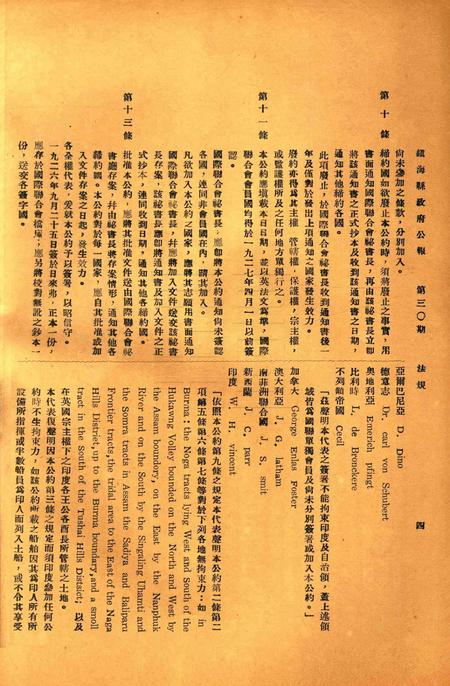 鎮海縣政府公報　第三〇期　法規　四
尚未參加之條款，分別加入。
第十條　締約國如欲廢止本公約時，須將廢止之事實，用
書面通知國際聯合會祕書長，再由該祕書長立即
將該通知書之正式抄本及收到該通知書之日期，
通知其他締約各國。
此項廢止，於國際聯合會祕書長收到通知書後一
年及僅對於發出上項通知之國家發生效力。
廢約亦得為其主權，管轄權，保護權，宗主權，
或監護權所及之任何地方單獨行之。
第十一條　本公約應填載本日日期，並以英法文為準，國際
聯合會會員國均得於一九二七年四月一日以前簽
認。
國際聯合會祕書長，應即將本公約通知尚未簽認
各國，連同非會員國在內，請其加入。
凡欲加入本公約之國家，應將其志願用書面通知
國際聯合會祕書長，并應將加入文件送交該祕書
長存案，該祕書長應即將通知書及加入文件之正
式抄本，連同收到日期，通知其他各締約國。
第十三條　批准本公約，應將其批准文件送由國際聯合會祕
書廳存案，幷由祕書長將存案情形，通知其他各
締約國。本公約對於每一國家，應自其批准或加
入文件存案之日起，發生效力。
各全權代表，爰就本公約予以簽署，以昭信守。
一九二六年九月二十五日簽於日來弗，正本一份，
應存於國際聯合會檔庫；應另將校對無訛之鈔本一
份，送交各簽字國。
亞爾巴尼亞 D. Dino
德意志 Dr. carl von Schubert
奧地利亞 Emerich pfingt
比利時 L. de Bronckere
不列顛帝國 Cecil
「茲聲明本代表之簽署不能拘束印度及自治領，蓋上述領
域皆為國聯單獨會員及尚未分別簽署或加入本公約。」
加拿大 George Enlas Foster
澳大利亞 J. G. latham
南菲洲聯合國 J. S. smit
新西蘭 J. C. parr
印度 W. H. vincent
「依照本公約第九條之規定本代表聲明本公約第二條第二
項第五條第六條第七條等對於下列各地無拘束力：如 in
Burma : the Noga tracts lying West and South of the
Hukawng Volley bounded on the North and West by
the Assam boundory, on the East by the Nanphuk
River and on the South by the Singaling Uhamti and
the Somra tracts in Assam the Sadiya and Baliparu
Frontier tracts, the tridal area to the East of the Naga
Hills District, up to the Burma boundary, and a smoll
tract in the South of the Tushai Hills Distsict; 以及
在英國宗主權下之印度各王公酋長所管轄之土地。
本代表復聲明因本公約第三條之規定而須印度參加任何公
約時不生拘束力，如該公約所載之船舶因其為印人所有所
設備所指揮或半數船員為印人而列入土船，或不令其享受